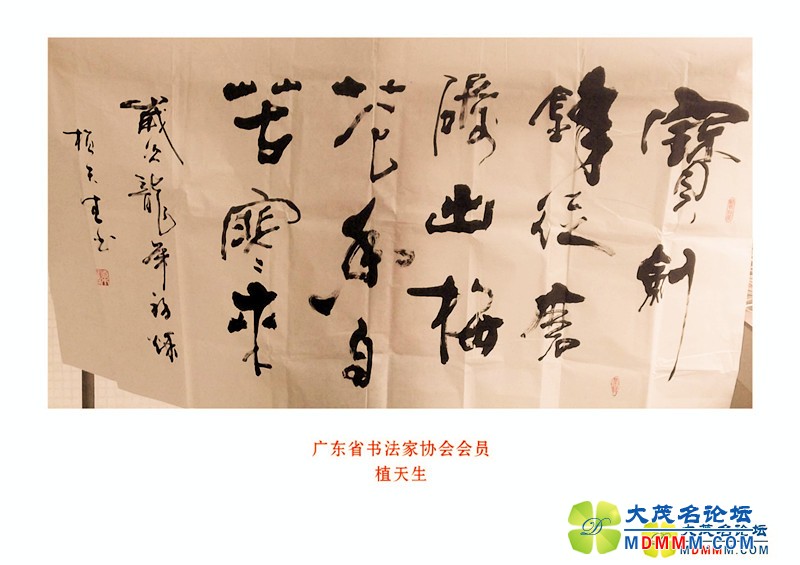 寶劍
鋒從磨
礪出梅
花香自
苦寒來
歲次龍年初
植天生书
广东省书法家协会会员
植天生
大茂名论坛
MDMMM.COM
大茂名论坛
MDMMM.COM